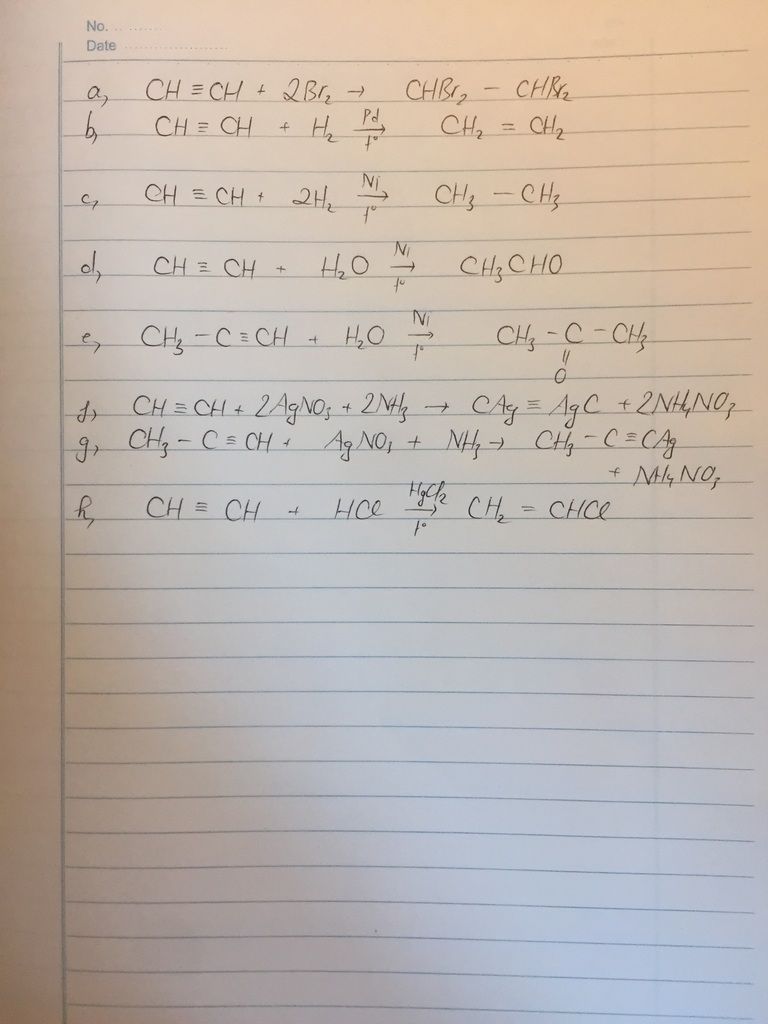 No. ........
Date ....................
a, CH ≡ CH + 2Br₂ → CHBr₂ – CHBr₂
b, CH ≡ CH + H₂ →[Pd, t°] CH₂ = CH₂
c, CH ≡ CH + 2H₂ →[Ni, t°] CH₃ – CH₃
d, CH ≡ CH + H₂O →[Ni, t°] CH₃CHO
e, CH₃ – C ≡ CH + H₂O →[Ni, t°] CH₃ – C – CH₃
||
O
f, CH ≡ CH + 2AgNO₃ + 2NH₃ → CAg ≡ AgC + 2NH₄NO₃
g, CH₃ – C ≡ CH + AgNO₃ + NH₃ → CH₃ – C ≡ CAg
+ NH₄NO₃
h, CH ≡ CH + HCl →[HgCl₂, t°] CH₂ = CHCl